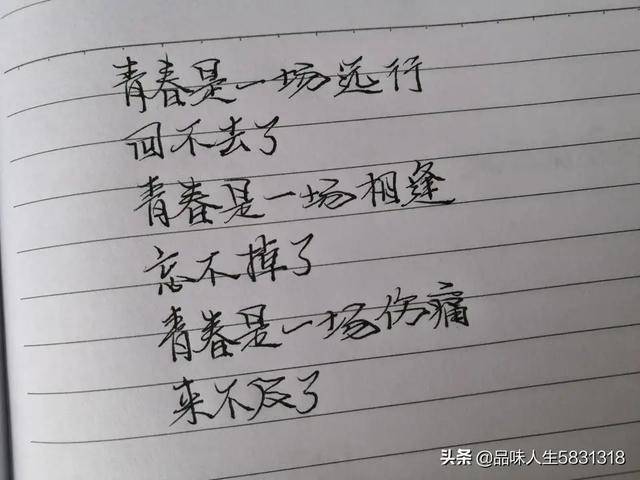 青春是一场远行
回不去了
青春是一场相逢
忘不掉了
青春是一场伤痛
来不及了
头条 @品味人生5831318